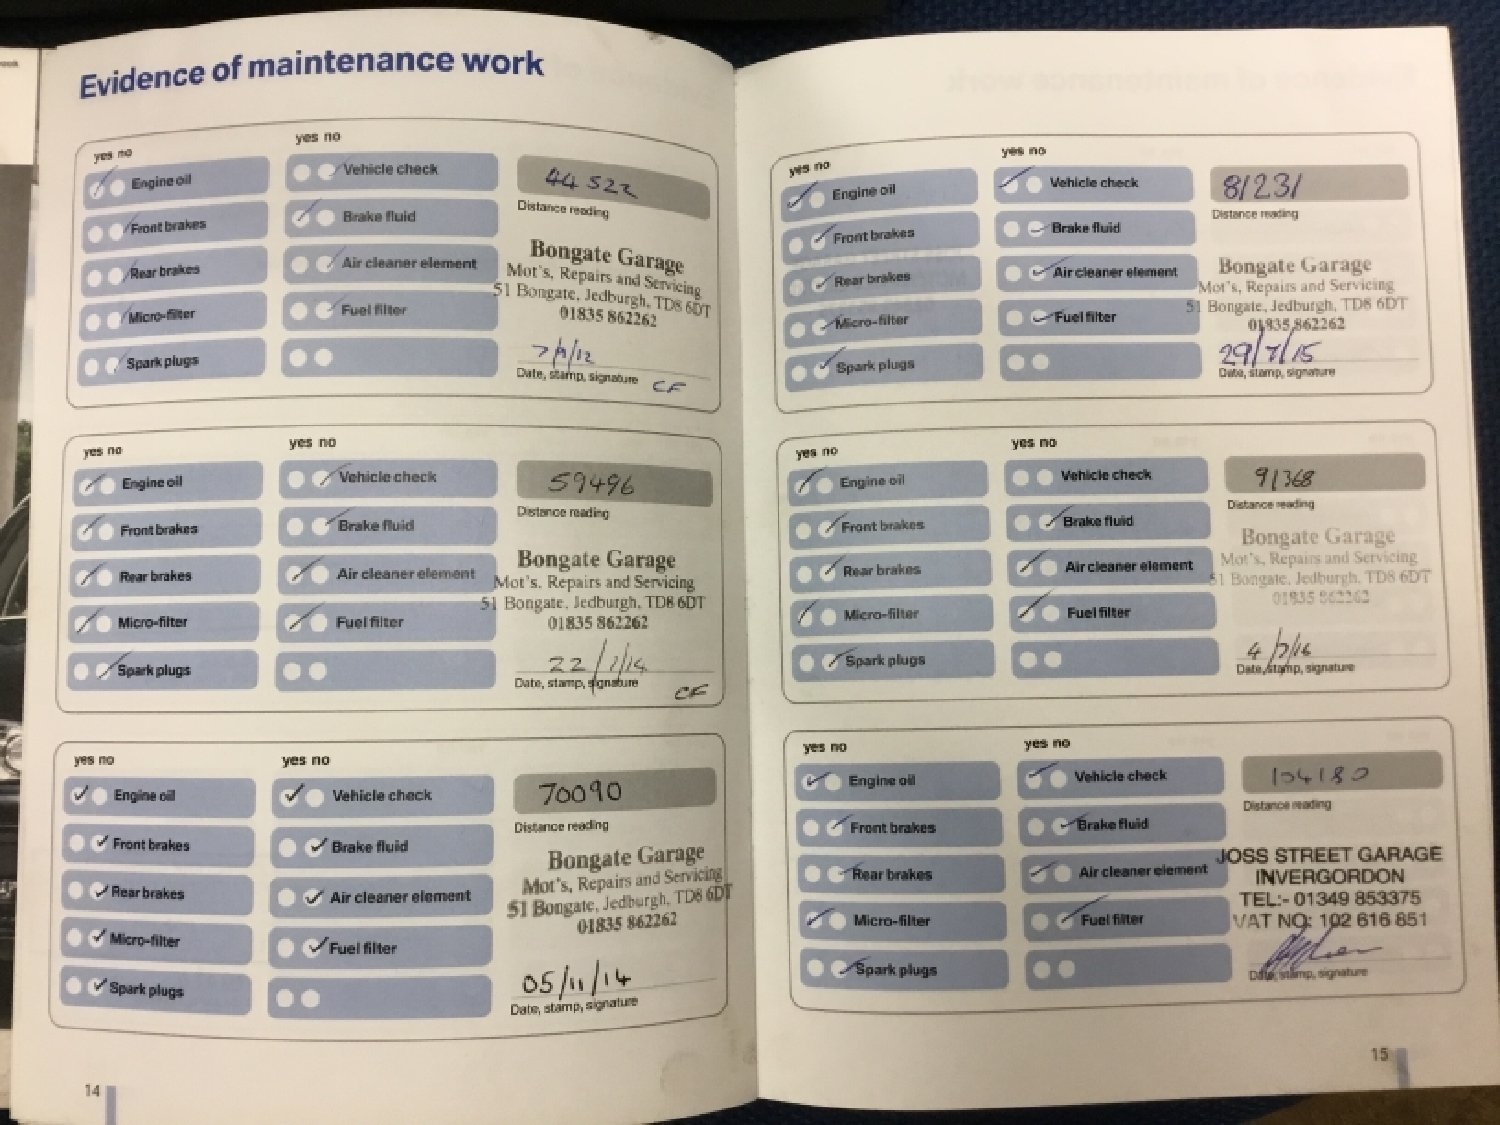 Evidence of maintenance work
yes no
yes no
Engine oil
Vehicle check
44 522
Front brakes
Brake fluid
Distance reading
Rear brakes
Air cleaner element
Bongate Garage
Mot's, Repairs and Servicing
51 Bongate, Jedburgh, TD8 6DT
01835 862262
Micro-filter
Fuel filter
Spark plugs
Date, stamp, signature
CF
yes no
yes no
Engine oil
Vehicle check
59496
Front brakes
Brake fluid
Distance reading
Rear brakes
Air cleaner element
Bongate Garage
Mot's, Repairs and Servicing
51 Bongate, Jedburgh, TD8 6DT
01835 862262
Micro-filter
Fuel filter
Spark plugs
22/7/14
Date, stamp, signature
CF
yes no
yes no
Engine oil
Vehicle check
70090
Front brakes
Brake fluid
Distance reading
Rear brakes
Air cleaner element
Bongate Garage
Mot's, Repairs and Servicing
51 Bongate, Jedburgh, TD8 6DT
01835 862262
Micro-filter
Fuel filter
Spark plugs
05/11/14
Date, stamp, signature
14
yes no
yes no
Engine oil
Vehicle check
81231
Front brakes
Brake fluid
Distance reading
Rear brakes
Air cleaner element
Bongate Garage
Mot's, Repairs and Servicing
51 Bongate, Jedburgh, TD8 6DT
01835 862262
Micro-filter
Fuel filter
Spark plugs
29/7/15
Date, stamp, signature
yes no
yes no
Engine oil
Vehicle check
91368
Front brakes
Brake fluid
Distance reading
Rear brakes
Air cleaner element
Bongate Garage
Mot's, Repairs and Servicing
51 Bongate, Jedburgh, TD8 6DT
01835 862262
Micro-filter
Fuel filter
Spark plugs
4/7/16
Date, stamp, signature
yes no
yes no
Engine oil
Vehicle check
104180
Front brakes
Brake fluid
Distance reading
Rear brakes
Air cleaner element
JOSS STREET GARAGE
INVERGORDON
TEL:- 01349 853375
VAT NO: 102 616 851
Micro-filter
Fuel filter
Spark plugs
Date, stamp, signature
15